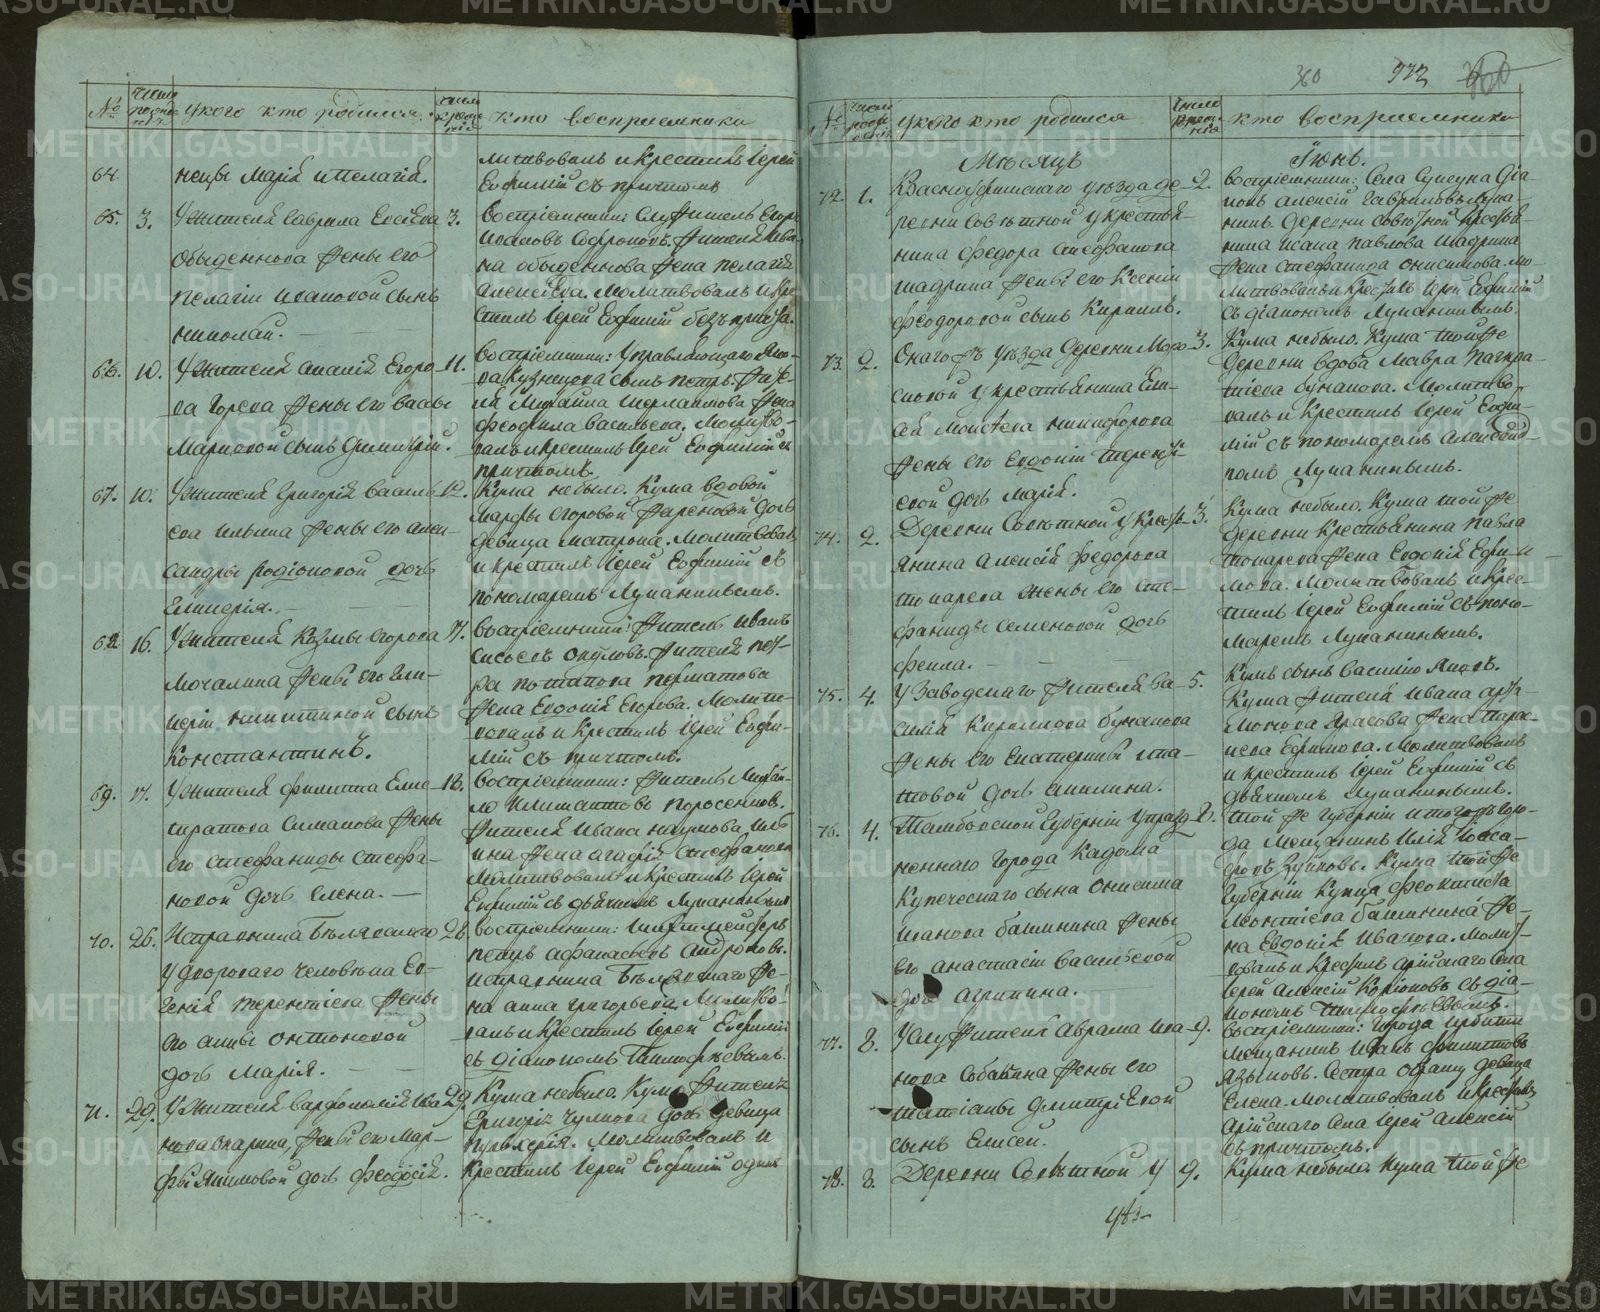 №
число рожденія
У кого кто родился.
число крещенія
Кто восприемники
64
нецы Марія и Пелагія.
литвовалъ и Крестилъ Іерей
Евфимій съ причтомъ
65.
3.
У жителя Гаврила Елсѣева
Обыденнова жены его
Пелагіи Ивановой сынъ
Николай.
3.
Воспріемники: Служитель Егоръ
Ивановъ Софроновъ. Жителя Ива-
на Обыденнова жена Пелагія
Алексѣева. Молитвовалъ и кре-
стилъ Іерей Евфимій безъ причта.
66.
10.
У жителя Ананія Егоро-
ва Горева жены его Васы
Марковой сынъ Димитрій.
11.
Воспріемники: Управляющаго Яко-
ва Кузнецова сынъ Петръ. Жите-
ля Михаила жена
Феофила Васильева. Молитво-
валъ и крестилъ Іерей Евфимій съ
причтомъ.
67.
10.
У жителя Григорія Василь-
ева Ильина жены его Алек-
сандры Родіоновой дочь
Гликерія.
12.
Кума небыло. Кума вдовой
Марфы Егоровой дочь
девица Матарона. Молитвовалъ
и крестилъ Іерей Евфимій съ
пономаремъ Лупанинымъ.
68
16.
У жителя Козмы Егорова
Мочалина жены его Гли-
керіи Никитиной сынъ
Константинъ.
17.
Воспріемники: Житель Иванъ
Сысоевъ Окуловъ. Жителя Пет-
ра Потапова
жена Евдокія Егорова. Молит-
вовалъ и Крестилъ Іерей Евфи-
мій съ причтомъ.
69.
17.
У жителя Филиппа Елис-
тратова Симанова жены
его Стефаниды Стефа-
новой дочь Елена.
18.
Воспріемники: Житель Михай-
ло Поросенковъ.
Жителя Ивана Наумова Иль-
ина жена Агафія Стефанова
Молитвовалъ и крестилъ Іерей
Евфимій съ дьячкомъ Лупанинымъ
70.
26.
Исправника Бѣлявскаго
у двороваго человѣка Ев-
генія Терентіева жены
его Анны Онтоновой
дочь Марія.
28.
Воспріемники:
Петръ Афанасьевъ Андроновъ.
Исправника Бѣлявскаго же-
на Анна Григорьева. Молитво-
валъ и Крестилъ Іерей Евфимій
съ діакономъ Тимофѣевымъ.
71.
29.
У жителя Варфоломѣя Ива-
нова жены его Мар-
фы Якимовой дочь Феодосія.
29.
Кума небыло. Кума жителя
Григорія Чулкова дочь девица
Пульхерія. Молитвовалъ и
крестилъ Іерей Евфимій одинъ
360
972
№
число рожденія
У кого кто родился
число крещенія
Кто восприемники
Мѣсяцъ
Іюнь.
72.
1.
Красноуфимскаго уѣзда де-
ревни Совѣтной у крестья-
нина Федора Стефанова
Шадрина жены его Ксеніи
Феодоровой сынъ Кириллъ.
2.
Воспріемники: Села Сунгула Діа-
конъ Алексій Гавриловъ Лупа-
нинъ. Деревни Совѣтной крестья-
нина Исака Павлова Шадрина
жена Стефанида Онисимова. Мо-
литвовалъ и Крестилъ Іерей Евфимій
съ діакономъ Лупанинымъ.
73.
2.
Онагожъ уѣзда деревни Мор-
сковой у крестьянина Ели-
сѣя Моисѣева Никифорова
жены его Евдокіи Терентье-
евой дочь Марія.
3.
Кума небыло. Кума тойже
деревни вдова Мавра Панкра-
тіева Бунакова. Молитво-
валъ и крестилъ Іерей Евфи-
мій съ пономаремъ
Лупанинымъ.
74.
2.
Деревни Совѣтной у крест-
янина Алексія Федорова
Токарева жены его Сте-
фаниды Семеновой дочь
Фекла.
3.
Кума небыло. Кума тойже
деревни Крестьянина Павла
Токарева жена Евдокія Ефи-
мова. Молитвовалъ и кре-
стилъ Іерей Евфимій съ поно-
маремъ Лупанинымъ.
75.
4.
У Заводскаго жителя Ва-
силія Кириллова Бунакова
жены его Екатерины
дочь Акилина.
5.
Кумъ сынъ Василію Яковъ.
Кума жителя Ивана Арта-
монова жена Парас-
кева Ефимова. Молитвовалъ
и крестилъ Іерей Евфимій съ
дьячкомъ Лупанинымъ.
76.
4.
Тамбовской Губерніи упразд-
неннаго города Кадома
Купеческаго сына Онисима
Иванова Башкина жены
его Анастасіи Васильевой
дочь Агрипина.
8.
Той же Губерніи и тогожъ горо-
да Мещанинъ Илія
Зуйковъ. Кума тойже
Губерніи Купца Феоктиста
Леонтіева Башкина же-
на Евдокія Иванова. Молит-
вовалъ и Крестилъ Арійскаго села
Іерей Алексій съ діа-
кономъ Тимофѣевымъ.
77.
8.
У служителя Аврама Ива-
нова Собакина жены его
Татіаны Дмитріевой
сынъ Елисей.
9.
Воспріемники: города Ирбити
Мещанинъ Иванъ Филипповъ
Языковъ. Сестра девица
Елена. Молитвовалъ и Крестилъ
Арійскаго села Іерей Алексій
съ причтомъ.
78.
8.
Деревни Совѣтной у
9.
Кума небыло. Кума тойже